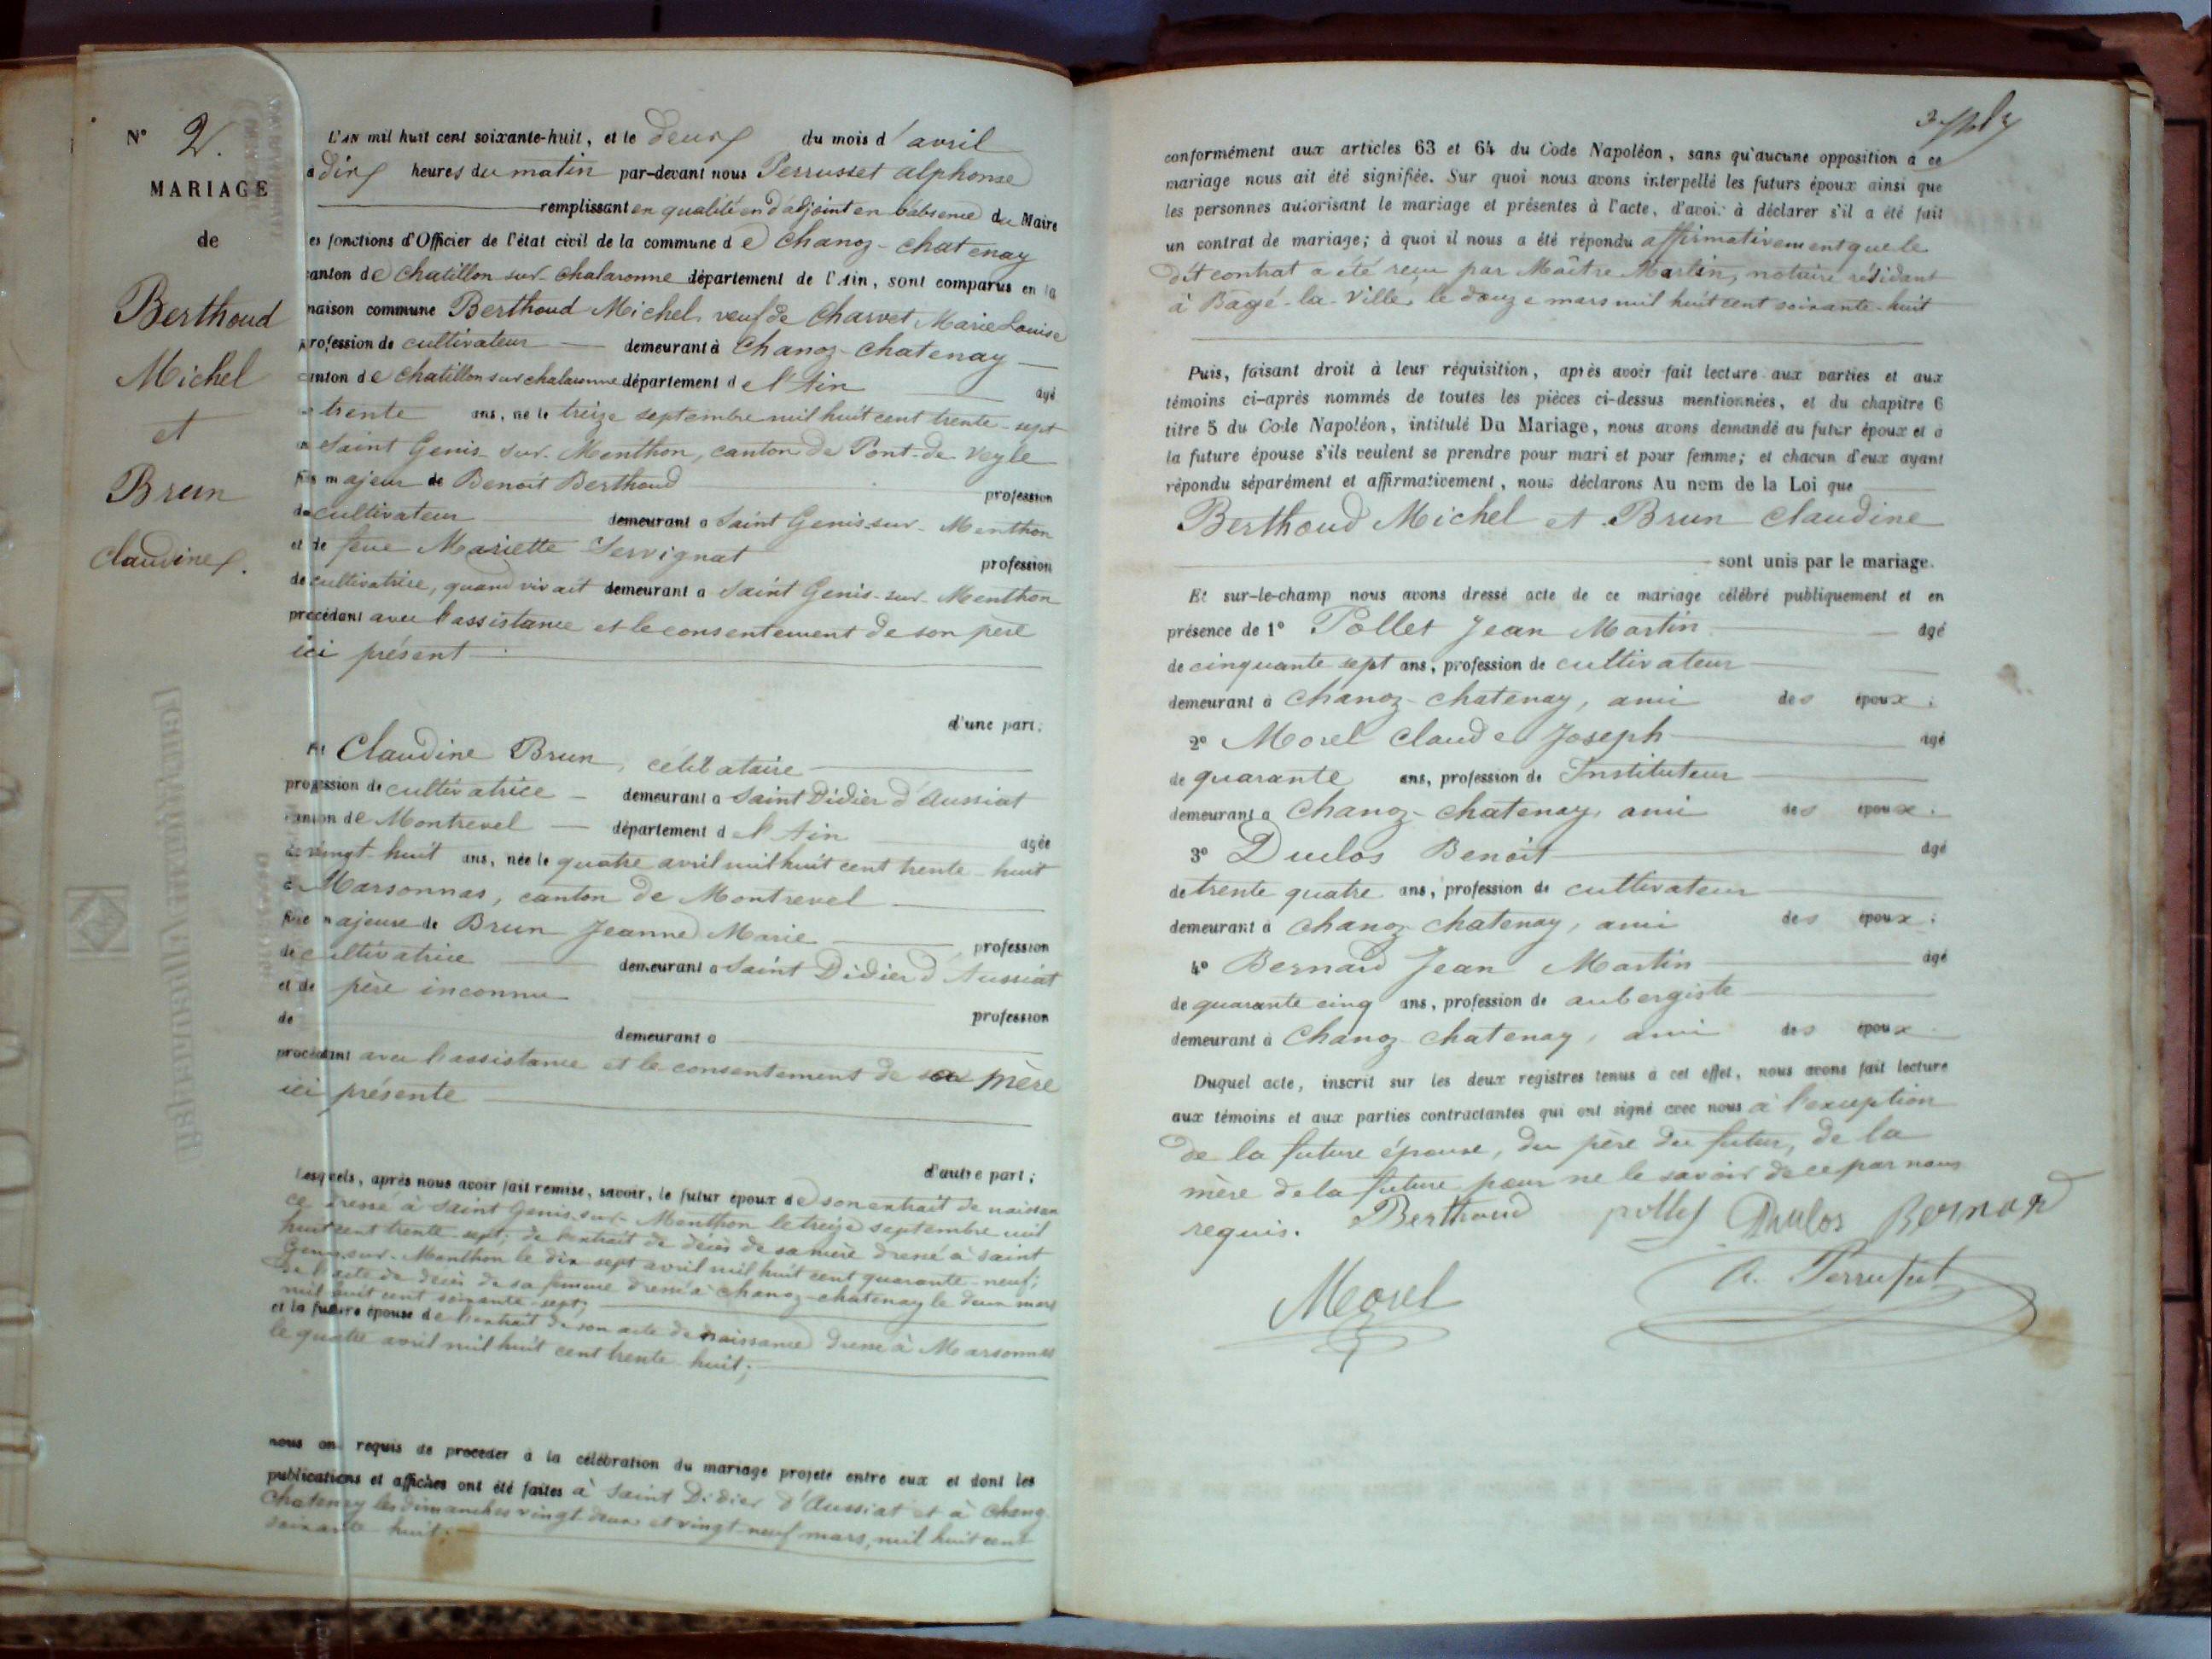 N° 2.
MARIAGE
de
Berthoud
Michel
et
Brun
Claudine.
L'AN mil huit cent soixante-huit, et le deux du mois d'avril
à dix heures du matin par-devant nous Perrusset Alphonse
remplissant en qualité en d'adjoint en l'absence du Maire
es fonctions d'Officier de l'état civil de la commune de Chanoz-Chatenay
canton de Chatillon sur Chalaronne département de l'Ain, sont comparus en la
maison commune Berthoud Michel veuf de Charvet Marie Louise
profession de cultivateur demeurant à Chanoz-Chatenay
canton de Chatillon sur chalaronne département de l'Ain âgé
de trente ans, né le treize septembre mil huit cent trente-sept
à Saint Genis-sur-Menthon, canton de Pont-de-Veyle
fils majeur de Benoît Berthoud profession
de cultivateur demeurant à Saint Genis-sur-Menthon
et de feue Mariette Servignat profession
de cultivatrice, quand vivait demeurant à Saint Genis-sur-Menthon
procédant avec l'assistance et le consentement de son père
ici présent
d'une part;
Et Claudine Brun, célibataire
profession de cultivatrice demeurant à Saint Didier d'Aussiat
canton de Montrevel département de l'Ain agée
de vingt-huit ans, née le quatre avril mil huit cent trente-huit
à Marsonnas, canton de Montrevel
fille majeure de Brun Jeanne Marie profession
de cultivatrice demeurant à Saint Didier d'Aussiat
et de père inconnu
de profession
demeurant à
procédant avec l'assistance et le consentement de sa mère
ici présente
d'autre part;
Lesquels, après nous avoir fait remise, savoir, le futur époux de son extrait de naissan
ce dressé à Saint Genis-sur-Menthon le treize septembre mil
huit cent trente-sept; de l'extrait de décès de sa mère dressé à Saint
Genis-sur-Menthon le dix sept avril mil huit cent quarante-neuf;
de l'acte de décès de sa femme dressé à Chanoz-Chatenay le deux mars
mil huit cent soixante-sept;
et la future épouse de l'extrait de son acte de naissance dressé à Marsonnas
le quatre avril mil huit cent trente-huit;
nous ont requis de procéder à la célébration du mariage projeté entre eux et dont les
publications et affiches ont été faites à Saint Didier d'Aussiat et à Chanoz
Chatenay les dimanches vingt deux et vingt-neuf mars, mil huit cent
soixante-huit.
conformément aux articles 63 et 64 du Code Napoléon, sans qu'aucune opposition à ce
mariage nous ait été signifiée. Sur quoi nous avons interpellé les futurs époux ainsi que
les personnes autorisant le mariage et présentes à l'acte, d'avoir à déclarer s'il a été fait
un contrat de mariage; à quoi il nous a été répondu affirmativement que le
dit contrat a été reçu par Maître Martin, notaire résidant
à Bagé-la-Ville, le douze mars mil huit cent soixante-huit
Puis, faisant droit à leur réquisition, après avoir fait lecture aux parties et aux
témoins ci-après nommés de toutes les pièces ci-dessus mentionnées, et du chapitre 6
titre 5 du Code Napoléon, intitulé Du Mariage, nous avons demandé au futur époux et à
la future épouse s'ils veulent se prendre pour mari et pour femme; et chacun d'eux ayant
répondu séparément et affirmativement, nous déclarons Au nom de la Loi que
Berthoud Michel et Brun Claudine
sont unis par le mariage.
Et sur-le-champ nous avons dressé acte de ce mariage célébré publiquement et en
présence de 1° Pollet Jean Martin âgé
de cinquante sept ans, profession de cultivateur
demeurant à Chanoz-Chatenay, ami des époux;
2° Morel Claude Joseph âgé
de quarante ans, profession de Instituteur
demeurant à Chanoz-Chatenay, ami des époux;
3° Duclos Benoît âgé
de trente quatre ans, profession de cultivateur
demeurant à Chanoz Chatenay, ami des époux;
4° Bernard Jean Martin âgé
de quarante cinq ans, profession de aubergiste
demeurant à Chanoz Chatenay, ami des époux
Duquel acte, inscrit sur les deux registres tenus à cet effet, nous avons fait lecture
aux témoins et aux parties contractantes qui ont signé avec nous à l'exception
de la future épouse, du père du futur, de la
mère de la future pour ne le savoir de ce par nous
requis.
Berthoud pollet Duclos Bernard
Morel A. Perrusset